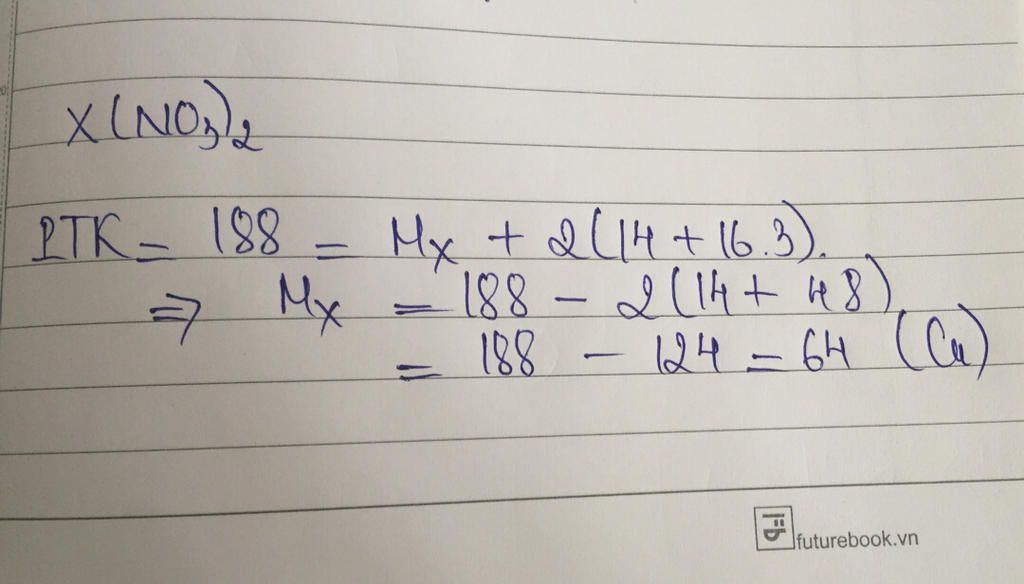 X(NO₃)₂
PTK = 188 = Mx + 2(14 + 16.3).
⇒ Mx = 188 - 2(14 + 48)
= 188 - 124 = 64 (Cu)
futurebook.vn